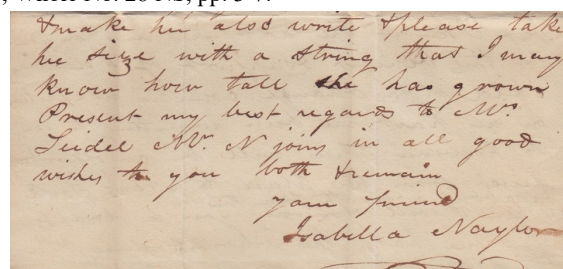 & make her also write & please take
her size with a string that I may
know how tall she has grown
Present my best regards to Mrs
Seidel Mr. N joins in all good
wishes to you both & remain
your friend
Isabella Naylor